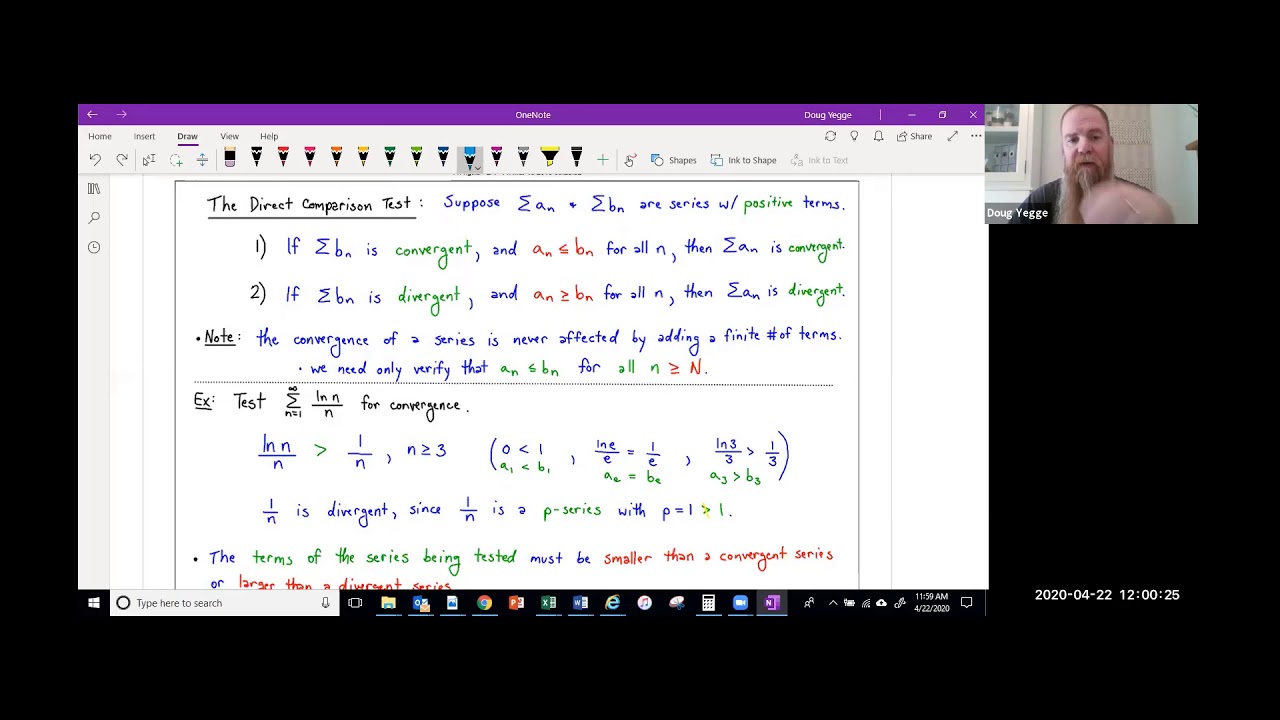 OneNote
Doug Yegge
Home Insert Draw View Help
Share
Shapes Ink to Shape Ink to Text
The Direct Comparison Test: Suppose Σan & Σbn are series w/ positive terms.
1) If Σbn is convergent, and an ≤ bn for all n, then Σan is convergent.
2) If Σbn is divergent, and an ≥ bn for all n, then Σan is divergent.
• Note: the convergence of a series is never affected by adding a finite # of terms.
• we need only verify that an ≤ bn for all n ≥ N.
Ex: Test ∞ Σ n=1 ln n / n for convergence.
ln n / n > 1 / n , n ≥ 3 ( 0 < 1 , ln e / e = 1 / e , ln 3 / 3 > 1 / 3 )
a1 < b1 ae = be a3 > b3
1 / n is divergent, since 1 / n is a p-series with p = 1 > 1.
• The terms of the series being tested must be smaller than a convergent series
or larger than a divergent series
Type here to search
11:59 AM
4/22/2020
Doug Yegge
2020-04-22 12:00:25